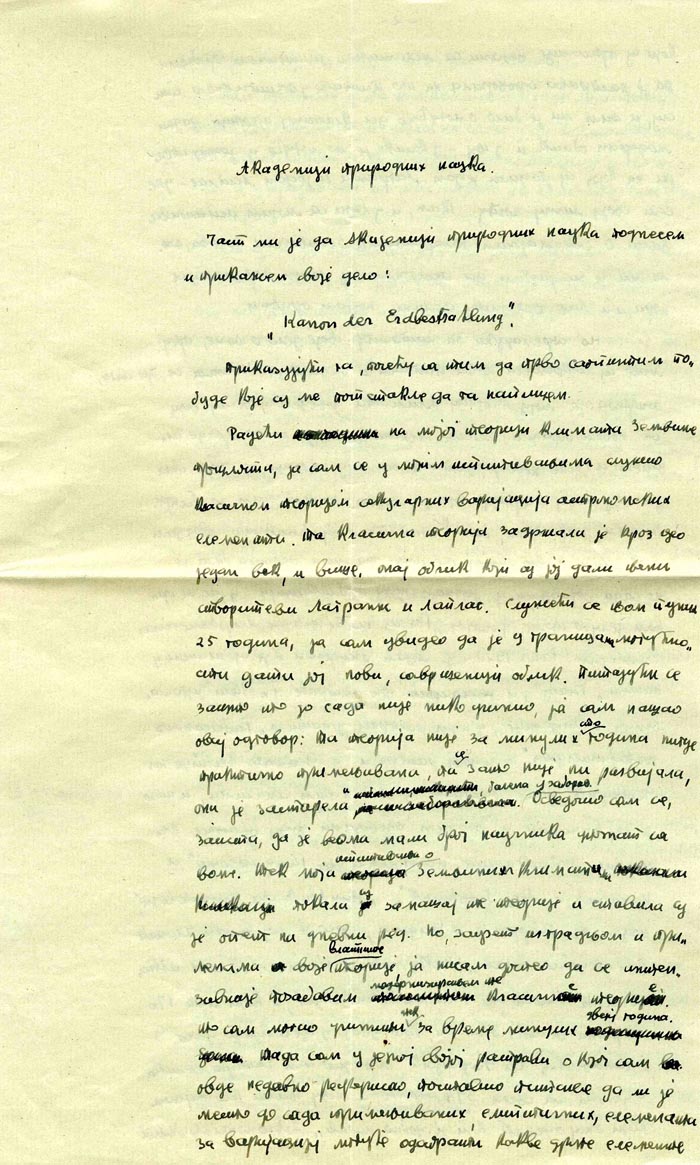 Академији природних наука.
Част ми је да Академији природних наука поднесем
и прикажем своје дело:
"Kanon der Erdbestrahlung".
Приказујући га, почећу са тим да прво саопштим по-
буде које су ме потстакле да га напишем.
Радећи на мојој теорији климата Земљине
прошлости, ја сам се у мојим испитивањима служио
класичном теоријом секуларних варијација астрономских
елемената. Та класична теорија задржала је кроз цео
један век, и више, онај облик који су јој дали њени
створитељи Лагранж и Лаплас. Служећи се њом пуних
25 година, ја сам увидео да је у границама могућно-
сти дати јој нови, савршенији облик. Питајући се
зашто то до сада није нико учинио, ја сам нашао
овај одговор: Та теорија није за минулих сто година нигде
практично примењивана, па се зато није ни развијала,
она је застарела, бачена у заборав. Осведочио сам се,
заиста, да је веома мали број научника упознат са
њоме. Тек моја испитивања о Земљиним климатима
показала су значај те теорије и ставила су
је опет на дневни ред. Но, заузет изградњом и при-
менама своје властите теорије, ја нисам доспео да се интен-
зивније позабавим модернизирањем те класичне теорије.
То сам могао учинити тек за време минулих двеју година.
Тада сам у једној својој расправи о којој сам
овде недавно реферисао, поставио питање да ли је
место до сада примењиваних, елиптичних, елемената
за варијације могуће одабрати какве друге елементе